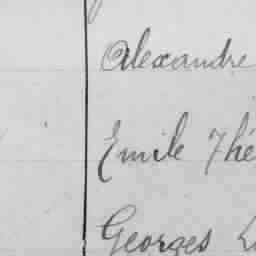 Alexandre
Emile Thé
Georges